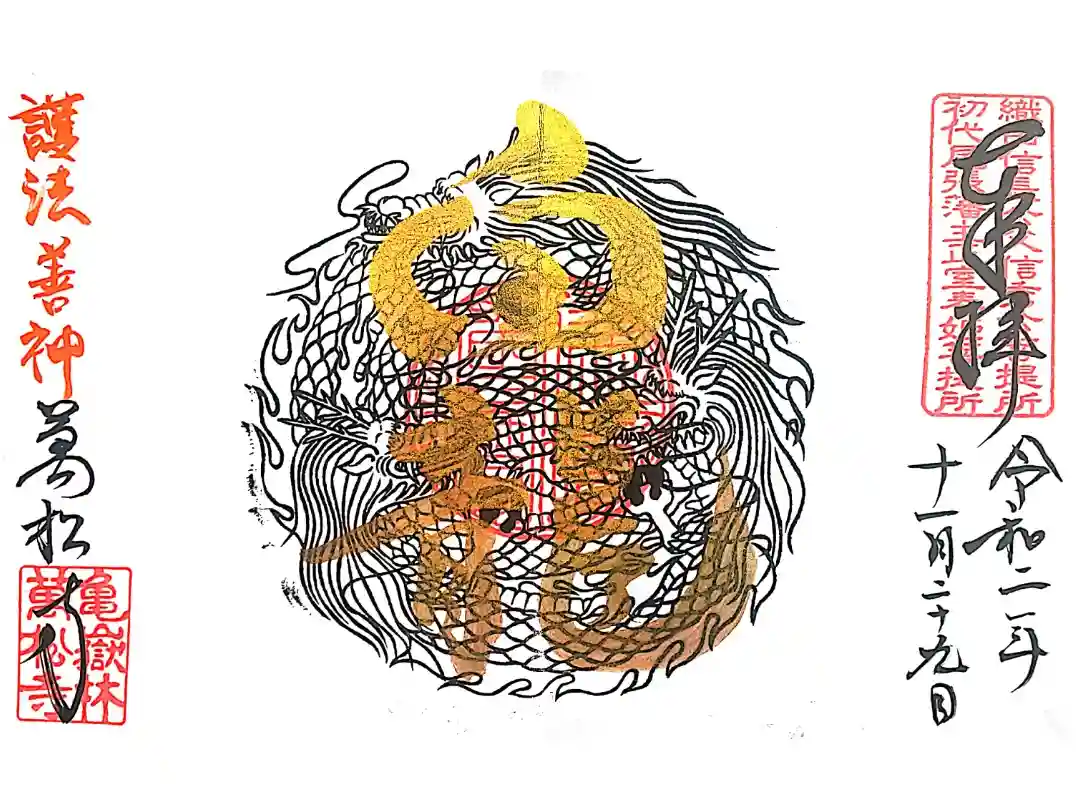 奉拝
織田信長父信秀公菩提所
初代尾張藩主正室春姫
令和二年
十一月二十九日
白龍
護法善神
萬松寺
亀嶽林
萬松寺